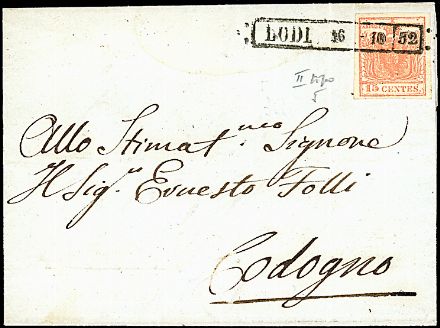 LODI 16 10 52
15 CENTES.
II tipo
5
Allo Stimat.mo Signore
Il Sig.r Ernesto Folli
Codogno